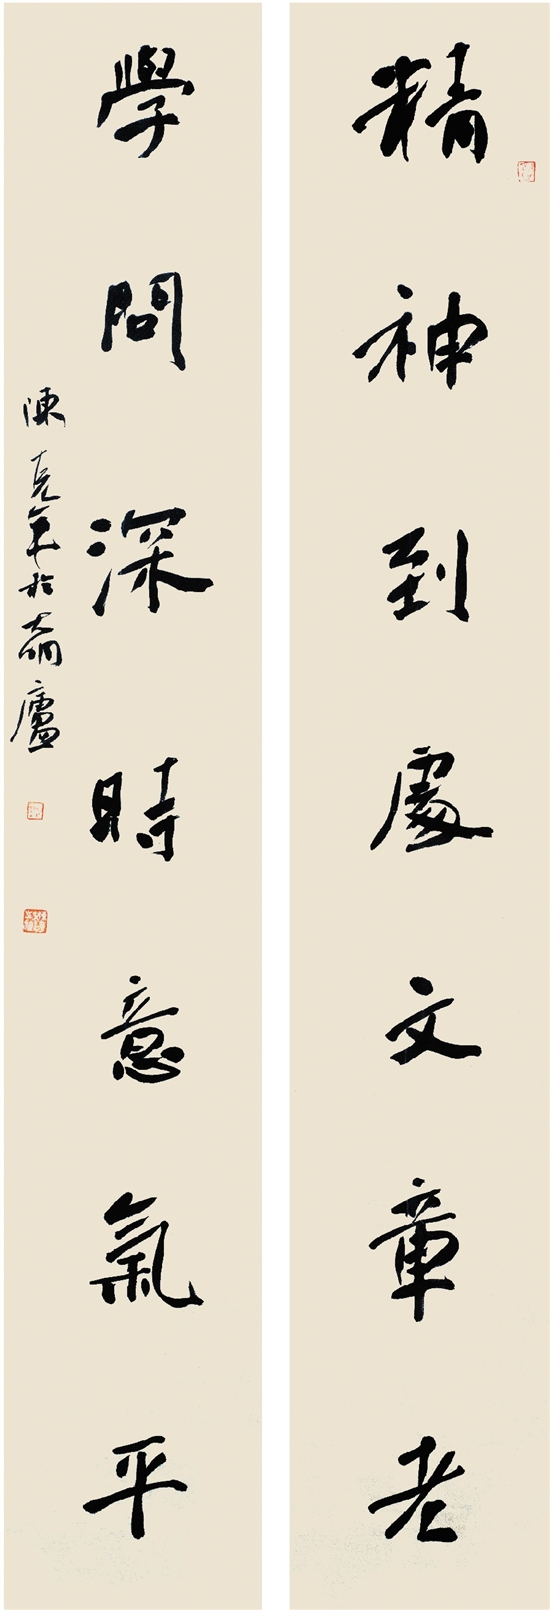 精神到處文章老
學問深時意氣平
陳克年於大硯廬